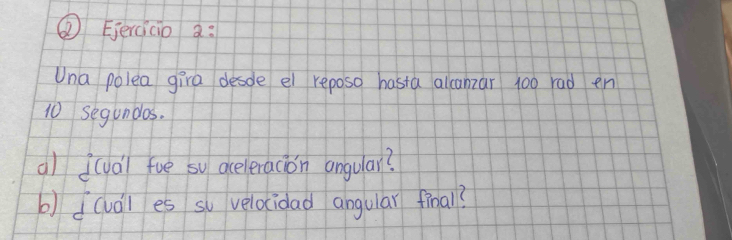 ② Ejercicio 2:
Una polea gira desde el reposo hasta alcanzar 100 rad en
10 segundos.
a) ¿Cuál fue su aceleración angular?
b) ¿Cuál es su velocidad angular final?